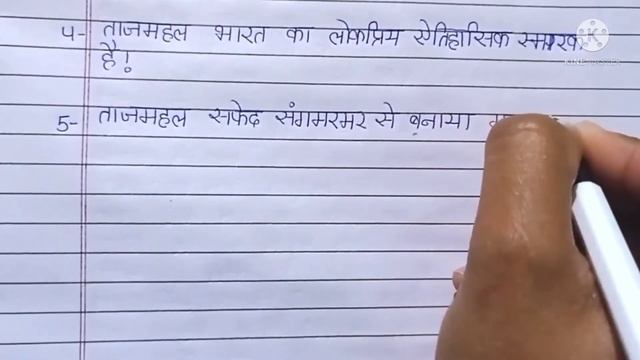 4- ताजमहल भारत का लोकप्रिय ऐतिहासिक स्मारक
है!
5- ताजमहल सफेद संगमरमर से बनाया